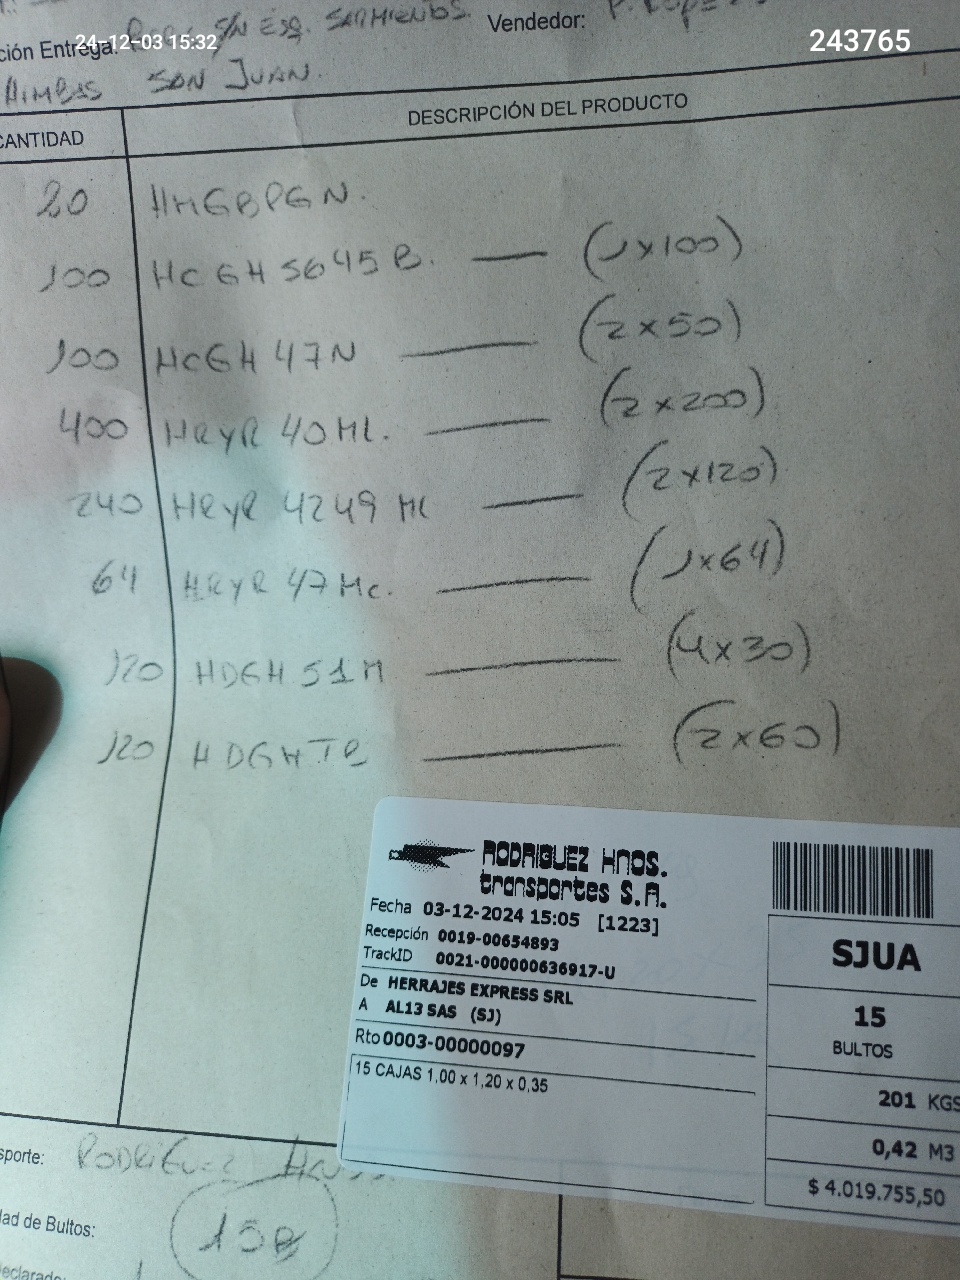 24-12-03 15:32
243765
ción Entrega: S/N ESQ. SARMIENTOS.
Vendedor:
SAN JUAN.
CANTIDAD DESCRIPCIÓN DEL PRODUCTO
20 HHGBPGN.
100 HCGH5645B. — (1x100)
100 HCGH 47N — (2x50)
400 HRYR 40 HL. — (2x200)
240 HRYR 4249 HC — (2x120)
64 HRYR 47 HC. — (1x64)
120 HDGH 51M — (4x30)
120 HDGHTR — (2x60)
RODRIGUEZ HNOS.
transportes S.A.
Fecha 03-12-2024 15:05 [1223]
Recepción 0019-00654893
TrackID 0021-000000636917-U
De HERRAJES EXPRESS SRL
A AL13 SAS (SJ)
Rto 0003-00000097
15 CAJAS 1,00 x 1,20 x 0,35
SJUA
15
BULTOS
201 KGS
0,42 M3
$ 4.019.755,50
sporte: RODRIGUEZ
dad de Bultos: 15B